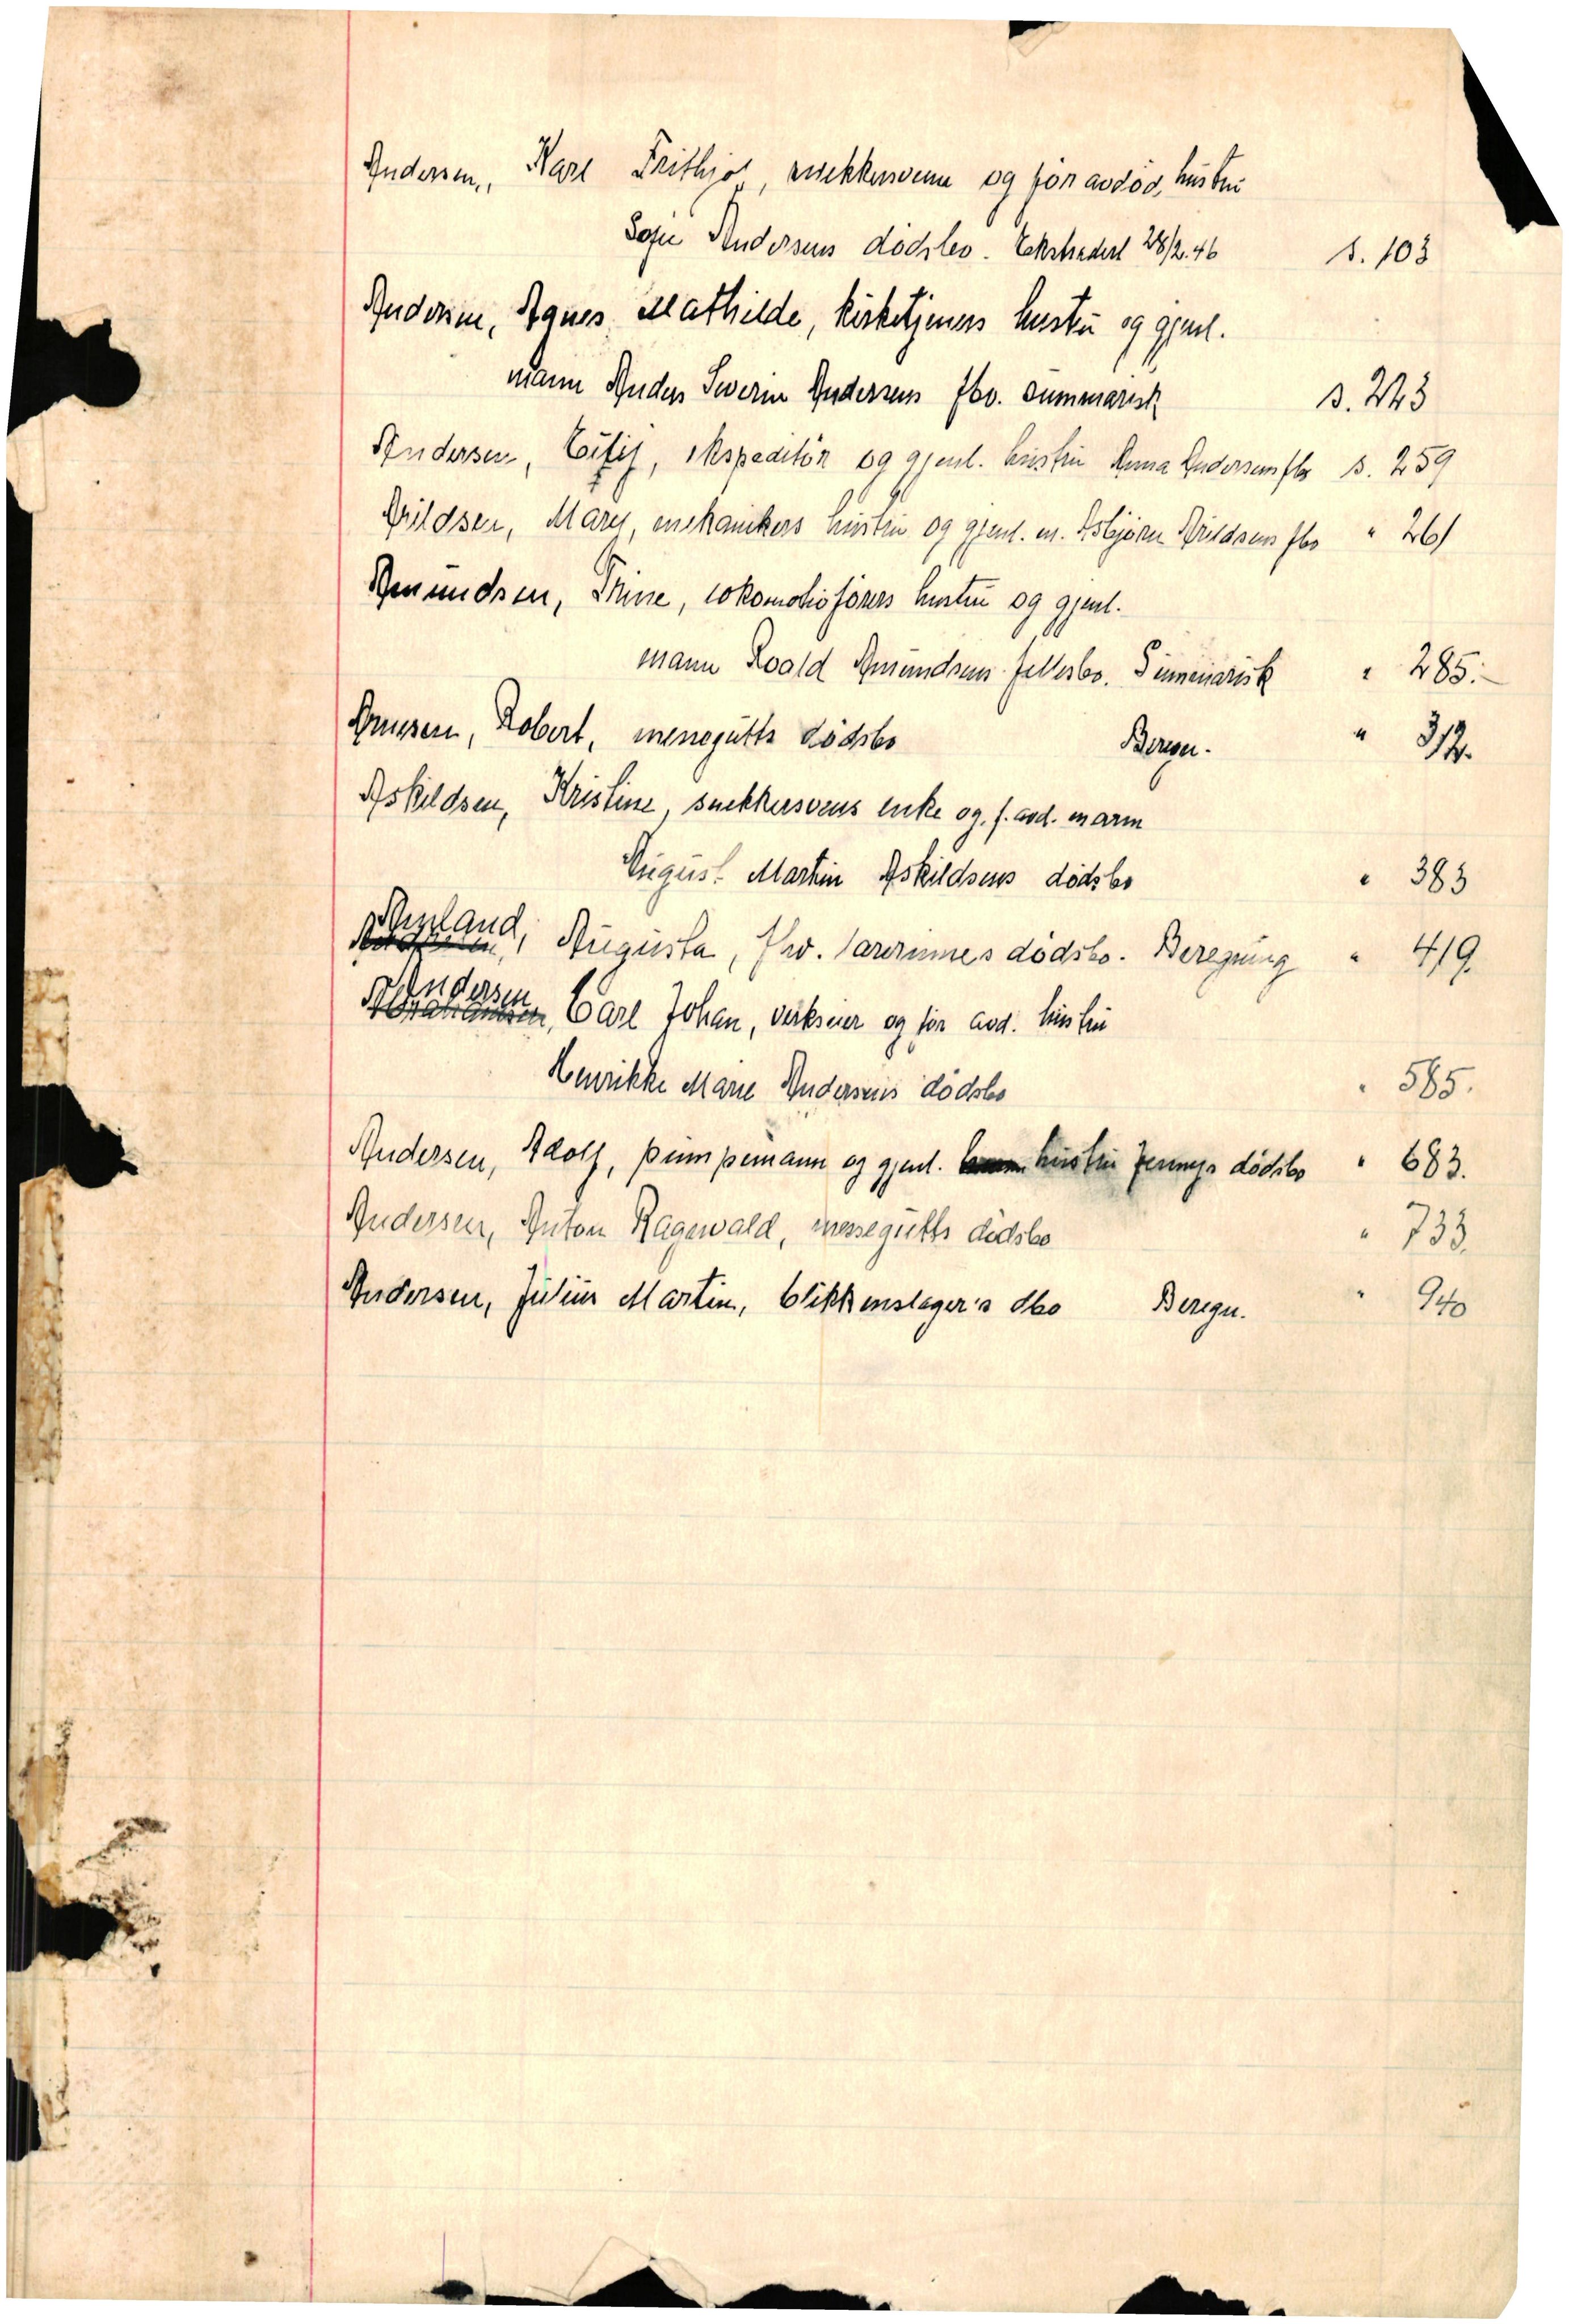 Andersen, Karl Frithjof, snekkersvenn og før avdød, hustru
Sofie Andersens dødsbo. Ekstraderl 28/2.46 s. 103
Andersen, Agnes Mathilde, kirketjeners hustru og gjenl.
mann Anders Severin Andersens fbo. summarisk s. 223
Andersen, Eilif, ekspeditör og gjenl. hustru Anna Andersens fbo s. 259
Arildsen, Mary, mekanikers hustru og gjenl. m. Asbjørn Arildsens fbo " 261
Amundsen, Trine, lokomotivförers hustru og gjenl.
mann Roald Amundsens fellesbo. Summarisk " 285.-
Arnesen, Robert, messegutts dödsbo Beregn. " 312.
Askildsen, Kristine, snekkersvens enke og. f. avd. mann
August Martin Askildsens dödsbo " 383
Augusta, frv. lærerinnes dödsbo. Beregning " 419.
Andersen
Abrahamsen, Carl Johan, verkseier og før avd. hustru
Henrikke Marie Andersens dödsbo " 585.
Andersen, Adolf, pumpemann og gjenl. hustru Jennys dödsbo " 683.
Andersen, Anton Ragnvald, messegutts dödsbo " 733.
Andersen, Julius Martin, blikkenslager's dbo Beregn. " 940